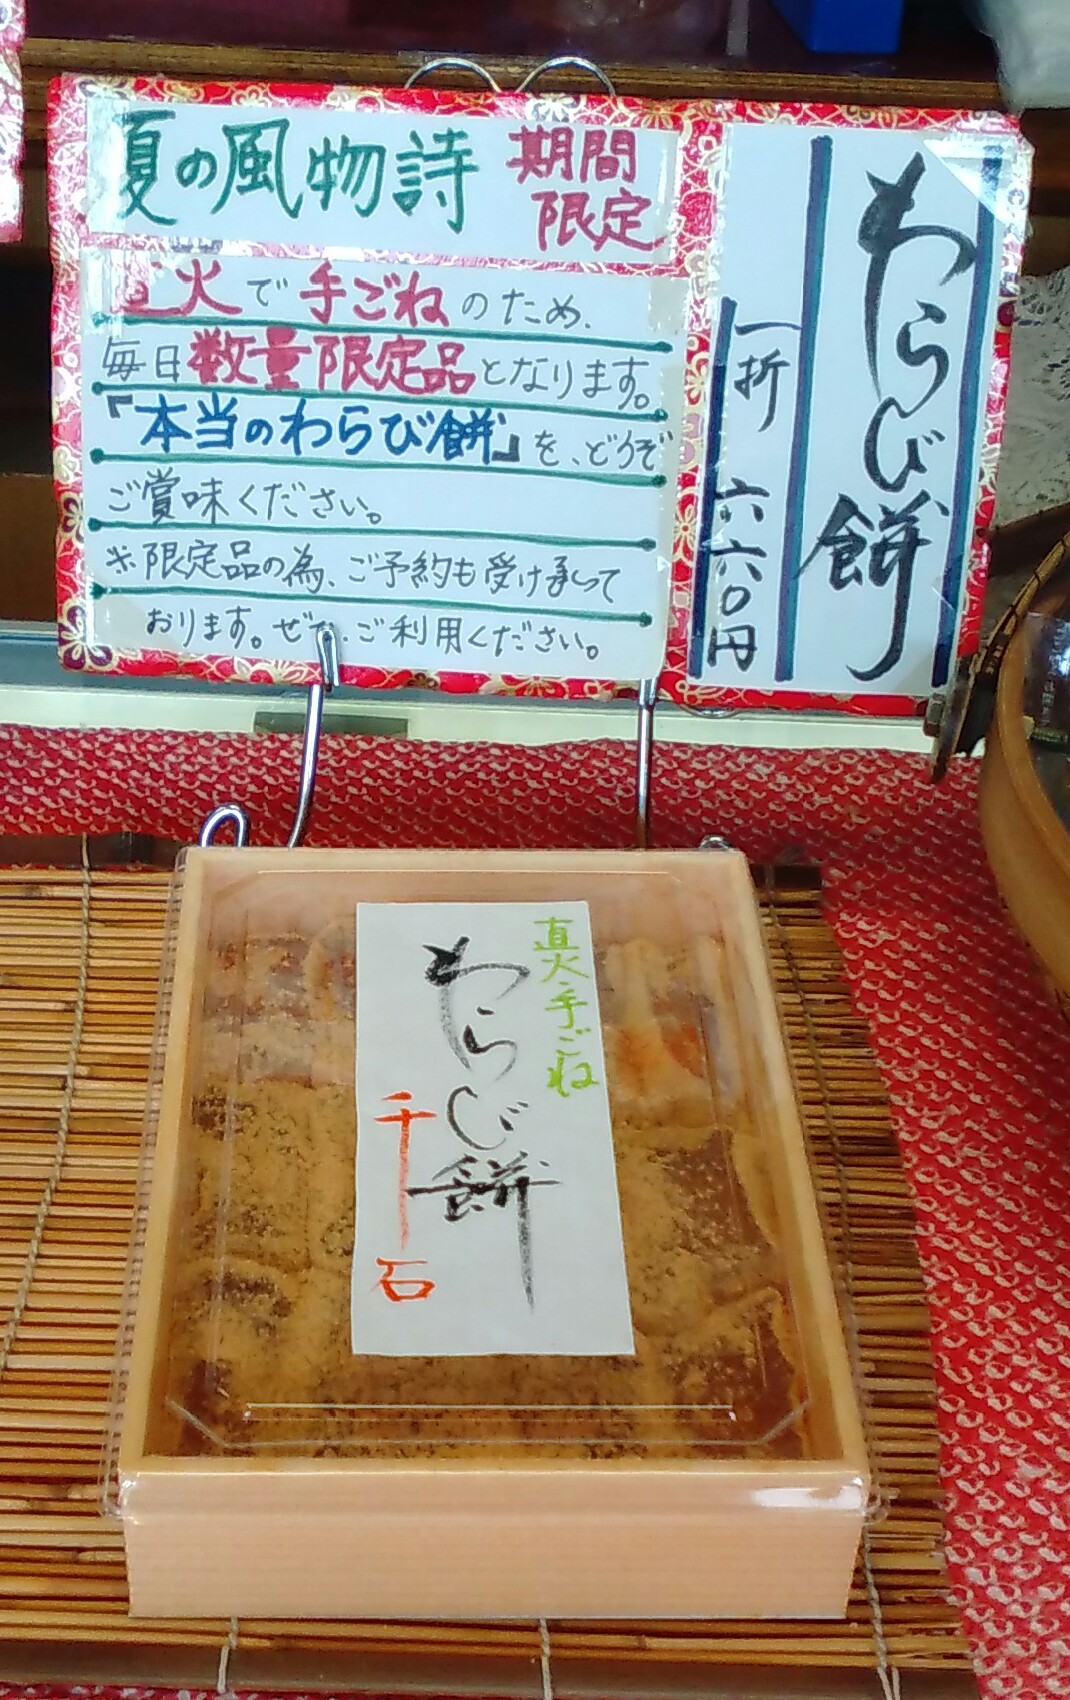 夏の風物詩
期間
限定
直火で手ごねのため、
毎日数量限定品となります。
『本当のわらび餅』を、どうぞ
ご賞味ください。
※限定品の為、ご予約も受け承って
おります。ぜひ、ご利用ください。
わらび餅
一折 六六〇円
直火・手ごね
わらび餅
千石